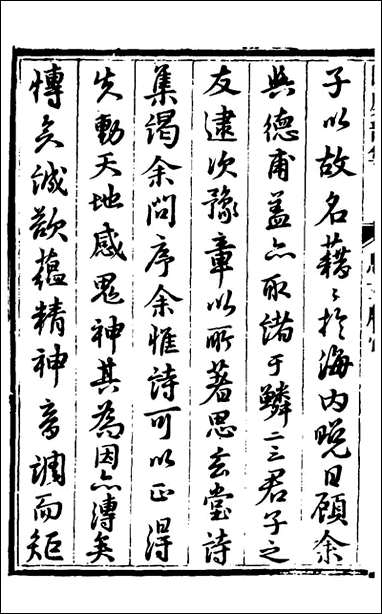 子以故名藉〻於海内晚日顧余
與德甫蓋亦取諸于鱗二三君子之
友逮次豫章以所著思玄堂詩
集謁余問序余惟詩可以正得
失動天地感鬼神其為因亦溥矣
愽矣誠欲蘊精神音調而矩